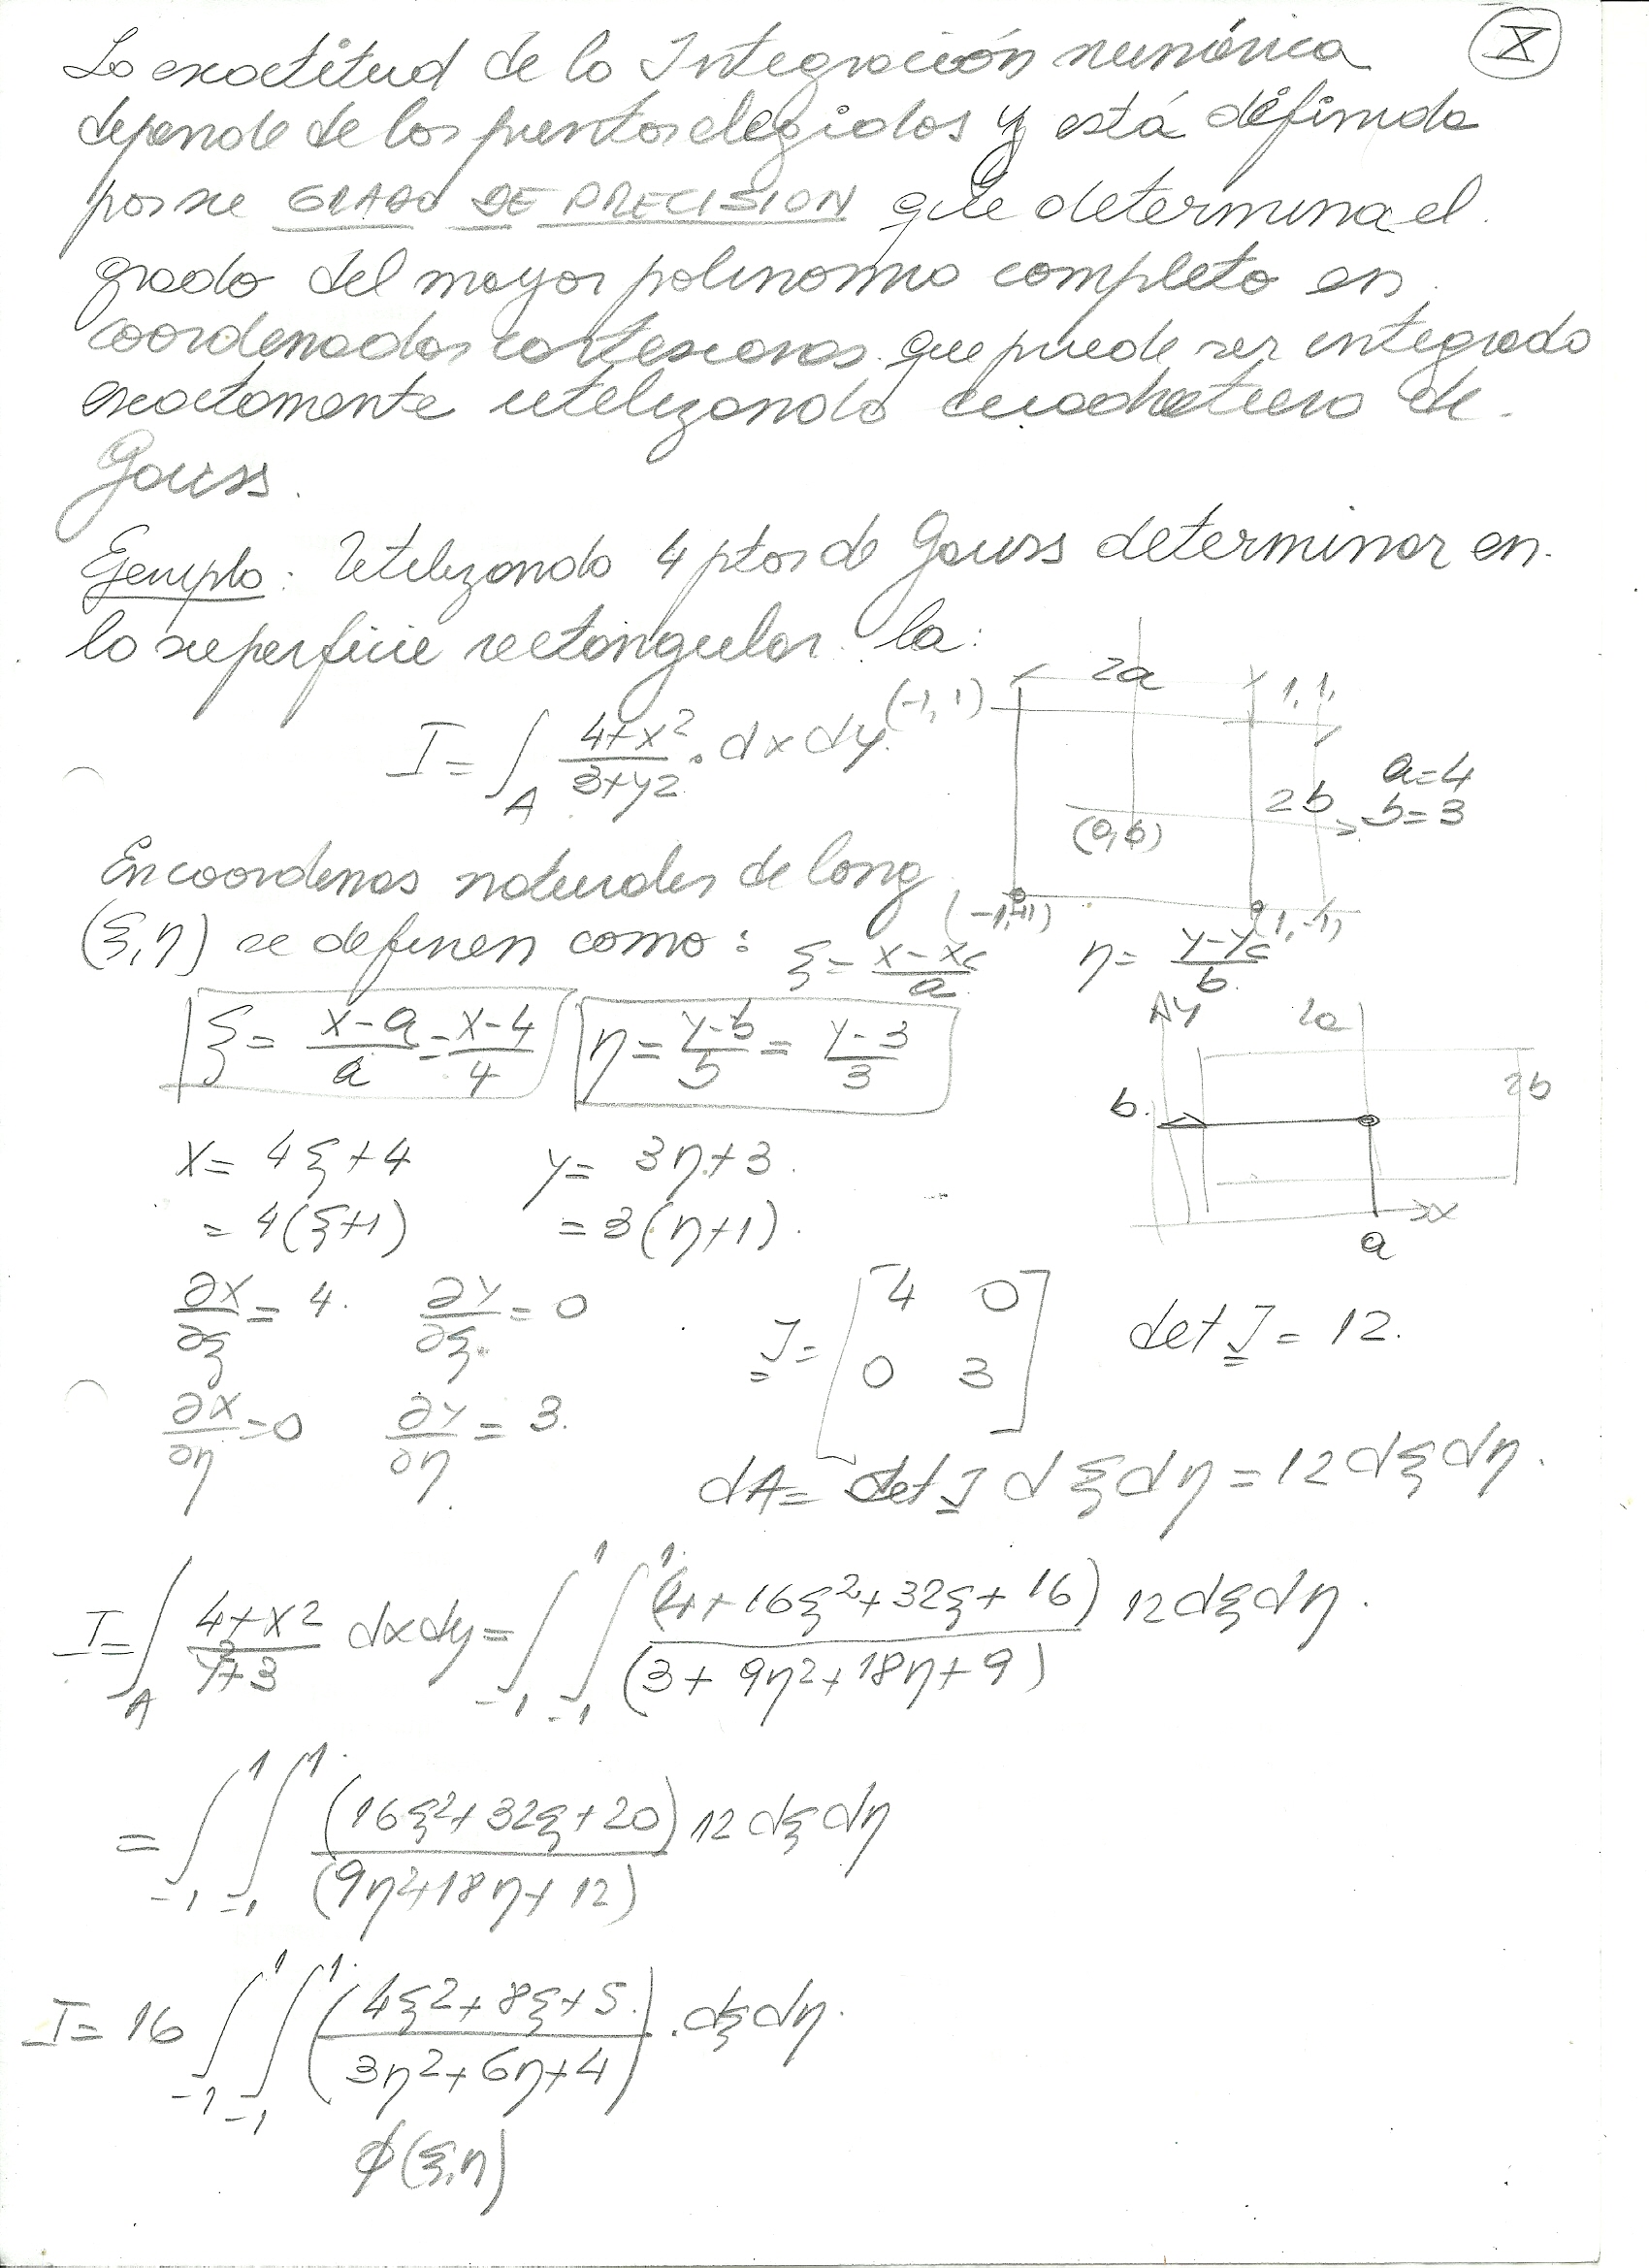 X
La exactitud de la Integración numérica
depende de los puntos elegidos y está definida
por su GRADO DE PRECISION que determina el
grado del mayor polinomio completo en
coordenadas cartesianas que puede ser integrado
exactamente utilizando cuadratura de
Gauss.
Ejemplo: Utilizando 4 ptos de Gauss determinar en
la superficie rectangular la:
I = ∫_A (4+x²)/(3+y²) · dxdy
2a
(-1,1)
1,1,
a=4
2b
b=3
(0,0)
(-1,-1)
(1,-1)
En coordenas naturales de long
(ξ,η) se definen como: ξ = (x-xc)/a η = (y-yc)/b
ξ = (x-a)/a = (x-4)/4 η = (y-b)/b = (y-3)/3
y
2a
2b
b
x
a
x = 4ξ+4 y = 3η+3
= 4(ξ+1) = 3(η+1).
∂x/∂ξ = 4. ∂y/∂ξ = 0
J = [4 0
0 3] det J = 12.
∂x/∂η = 0 ∂y/∂η = 3.
dA = det J dξdη = 12dξdη.
I = ∫_A (4+x²)/(y²+3) dxdy = ∫_-1^1 ∫_-1^1 (4+16ξ²+32ξ+16)/(3+9η²+18η+9) 12dξdη.
= ∫_-1^1 ∫_-1^1 (16ξ²+32ξ+20)/(9η²+18η+12) 12dξdη
I = 16 ∫_-1^1 ∫_-1^1 ((4ξ²+8ξ+5)/(3η²+6η+4)) . dξdη.
ϕ(ξ,η)